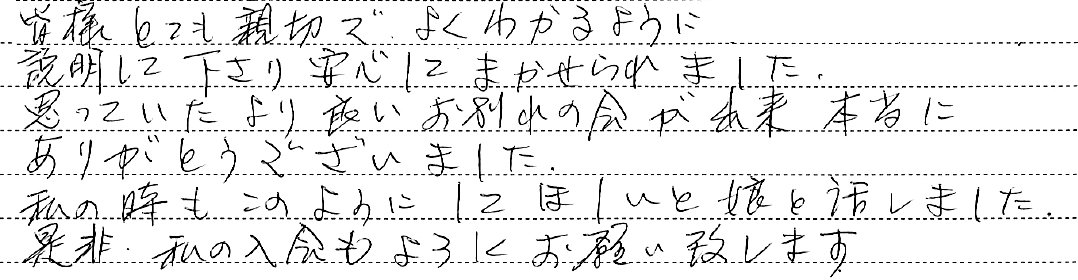 皆様とても親切で、よくわかるように
説明して下さり安心してまかせられました。
思っていたより良いお別れの会が出来本当に
ありがとうございました。
私の時もこのようにしてほしいと娘と話しました。
是非、私の入会もよろしくお願い致します